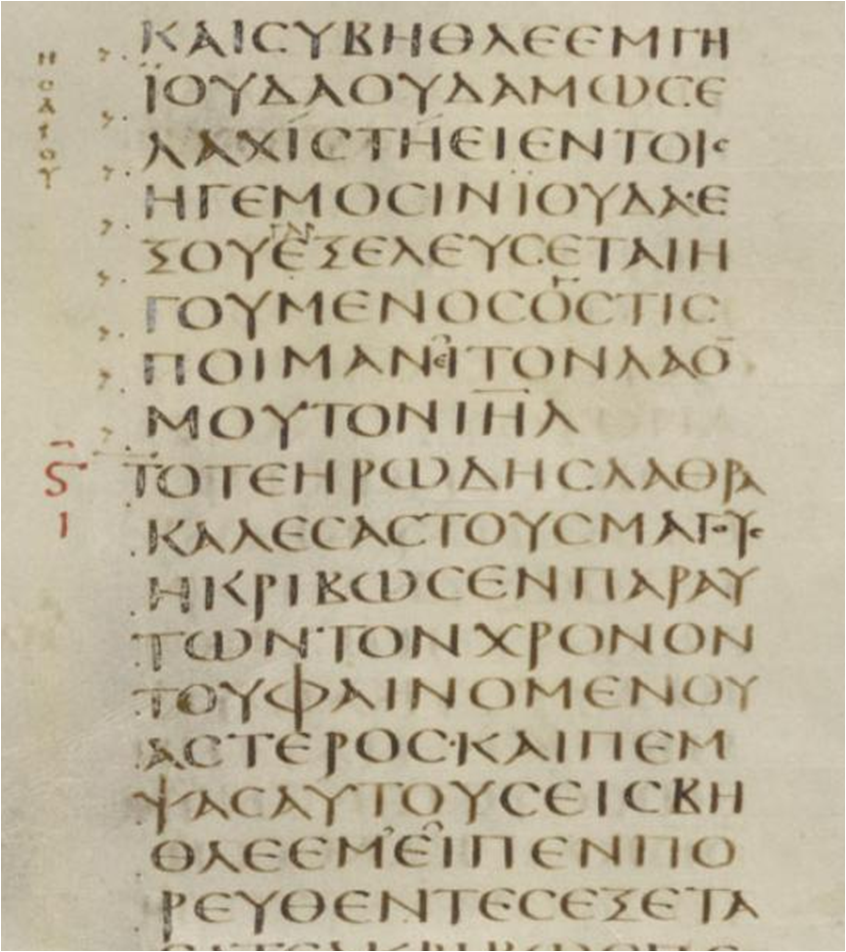 ΗϹΑΙΟΥ
ΚΑΙϹΥΒΗΘΛΕΕΜΓΗ
ΪΟΥΔΑΟΥΔΑΜΩϹΕ
ΛΑΧΙϹΤΗΕΙΕΝΤΟΙϹ
ΗΓΕΜΟϹΙΝΪΟΥΔΑ·Ε
ΞΟΥΕΞΕΛΕΥϹΕΤΑΙΗ
ΓΟΥΜΕΝΟϹΟϹΤΙϹ
ΠΟΙΜΑΝΕΙΤΟΝΛΑΟ̅
ΜΟΥΤΟΝΙΗ̅Λ
Ϛ̅
Ι
ΤΟΤΕΗΡΩΔΗϹΛΑΘΡΑ
ΚΑΛΕϹΑϹΤΟΥϹΜΑΓΟΥϹ
ΗΚΡΙΒΩϹΕΝΠΑΡΑΥ
ΤΩΝ·ΤΟΝΧΡΟΝΟΝ
ΤΟΥΦΑΙΝΟΜΕΝΟΥ
ΑϹΤΕΡΟϹ·ΚΑΙΠΕΜ
ΨΑϹΑΥΤΟΥϹΕΙϹΒΗ
ΘΛΕΕΜΕΙΠΕΝΠΟ
ΡΕΥΘΕΝΤΕϹΕΞΕΤΑ